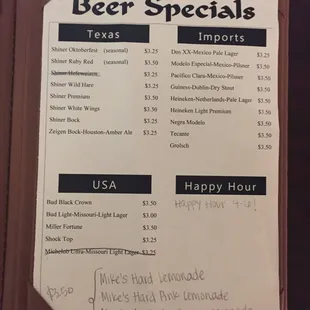 Beer Specials
Texas
Shiner Oktoberfest (seasonal) $3.25
Shiner Ruby Red (seasonal) $3.50
Shiner Hefeweizen $3.25
Shiner Wild Hare $3.25
Shiner Premium $3.50
Shiner White Wings $3.50
Shiner Bock $3.25
Zeigen Bock-Houston-Amber Ale $3.25
Imports
Dos XX-Mexico Pale Lager $3.25
Modelo Especial-Mexico-Pilsner $3.50
Pacifico Clara-Mexico-Pilsner $3.50
Guiness-Dublin-Dry Stout $3.50
Heineken-Netherlands-Pale Lager $3.50
Heineken Light Premium $3.50
Negra Modelo $3.50
Tecante $3.50
Grolsch $3.50
USA
Bud Black Crown $3.50
Bud Light-Missouri-Light Lager $3.00
Miller Fortune $3.50
Shock Top $3.25
Michelob Ultra-Missouri Light Lager $3.25
Happy Hour
Happy Hour 4-6!
$3.50
Mike's Hard Lemonade
Mike's Hard Pink Lemonade